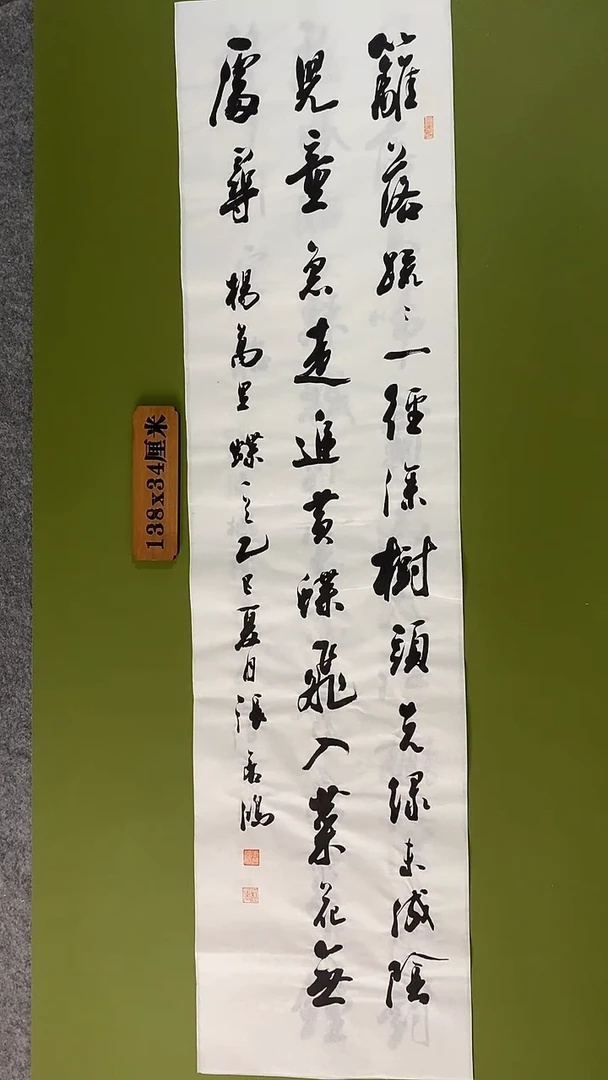 籬落疏〻一徑深樹頭先緑未成陰
兒童急走追黄蝶飛入菜花無
處尋 楊萬里 蝶 乙巳夏月張鴻
138x34厘米